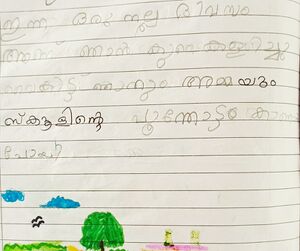 ഇന്ന് ഒരു നല്ല ദിവസം
ആണ് ഞാൻ കുറെ കളിച്ചു
വൈകിട്ട് ഞാനും അമ്മയും
സ്കൂളിന്റെ പൂന്തോട്ടം കാണാൻ
പോയി